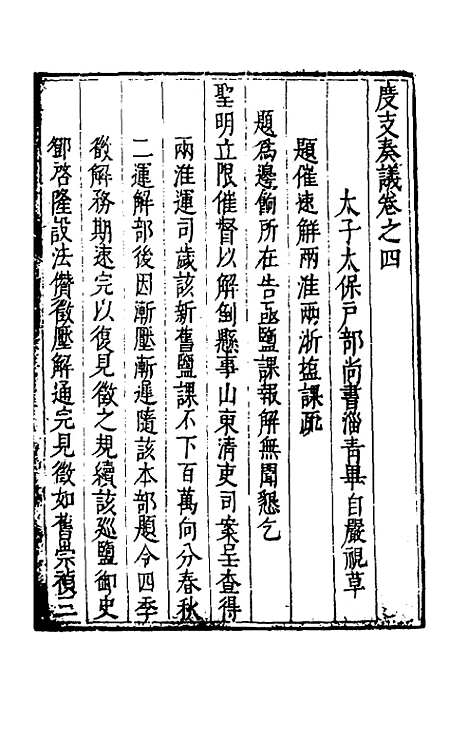 度支奏議卷之四
太子太保戶部尚書淄青畢自嚴視草
題催速解兩淮兩浙塩課疏
題為邊餉所在告亟鹽課報解無聞懇乞
聖明立限催督以解倒懸事山東清吏司案呈查得
兩淮運司歲該新舊鹽課不下百萬向分春秋
二運解部後因漸壓漸遲隨該本部題令四季
徵解務期速完以復見徵之規續該廵鹽御史
鄧啓隆設法儹徵壓解通完見徵如舊崇禎三